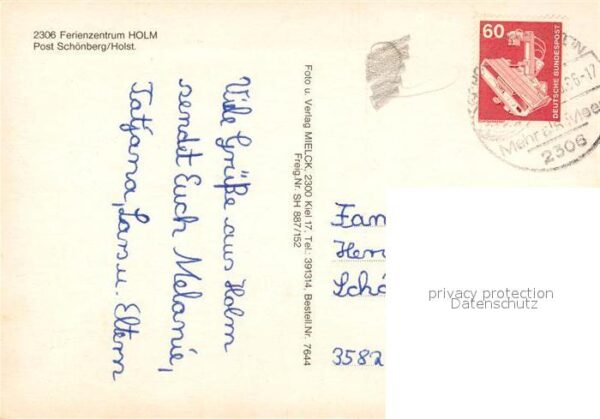 2306 Ferienzentrum HOLM
Post Schönberg/Holst.
Viele Grüße aus Holm
sendet Euch Melanie,
Tatjana, Lars u. Eltern
Foto u. Verlag MIELCK, 2300 Kiel 17, Tel.: 391314, Bestell.Nr. 7644
Freig.Nr. SH 887/152
60
DEUTSCHE BUNDESPOST
6-17
2306
Fam
Her
Schö
3582
privacy protection
Datenschutz